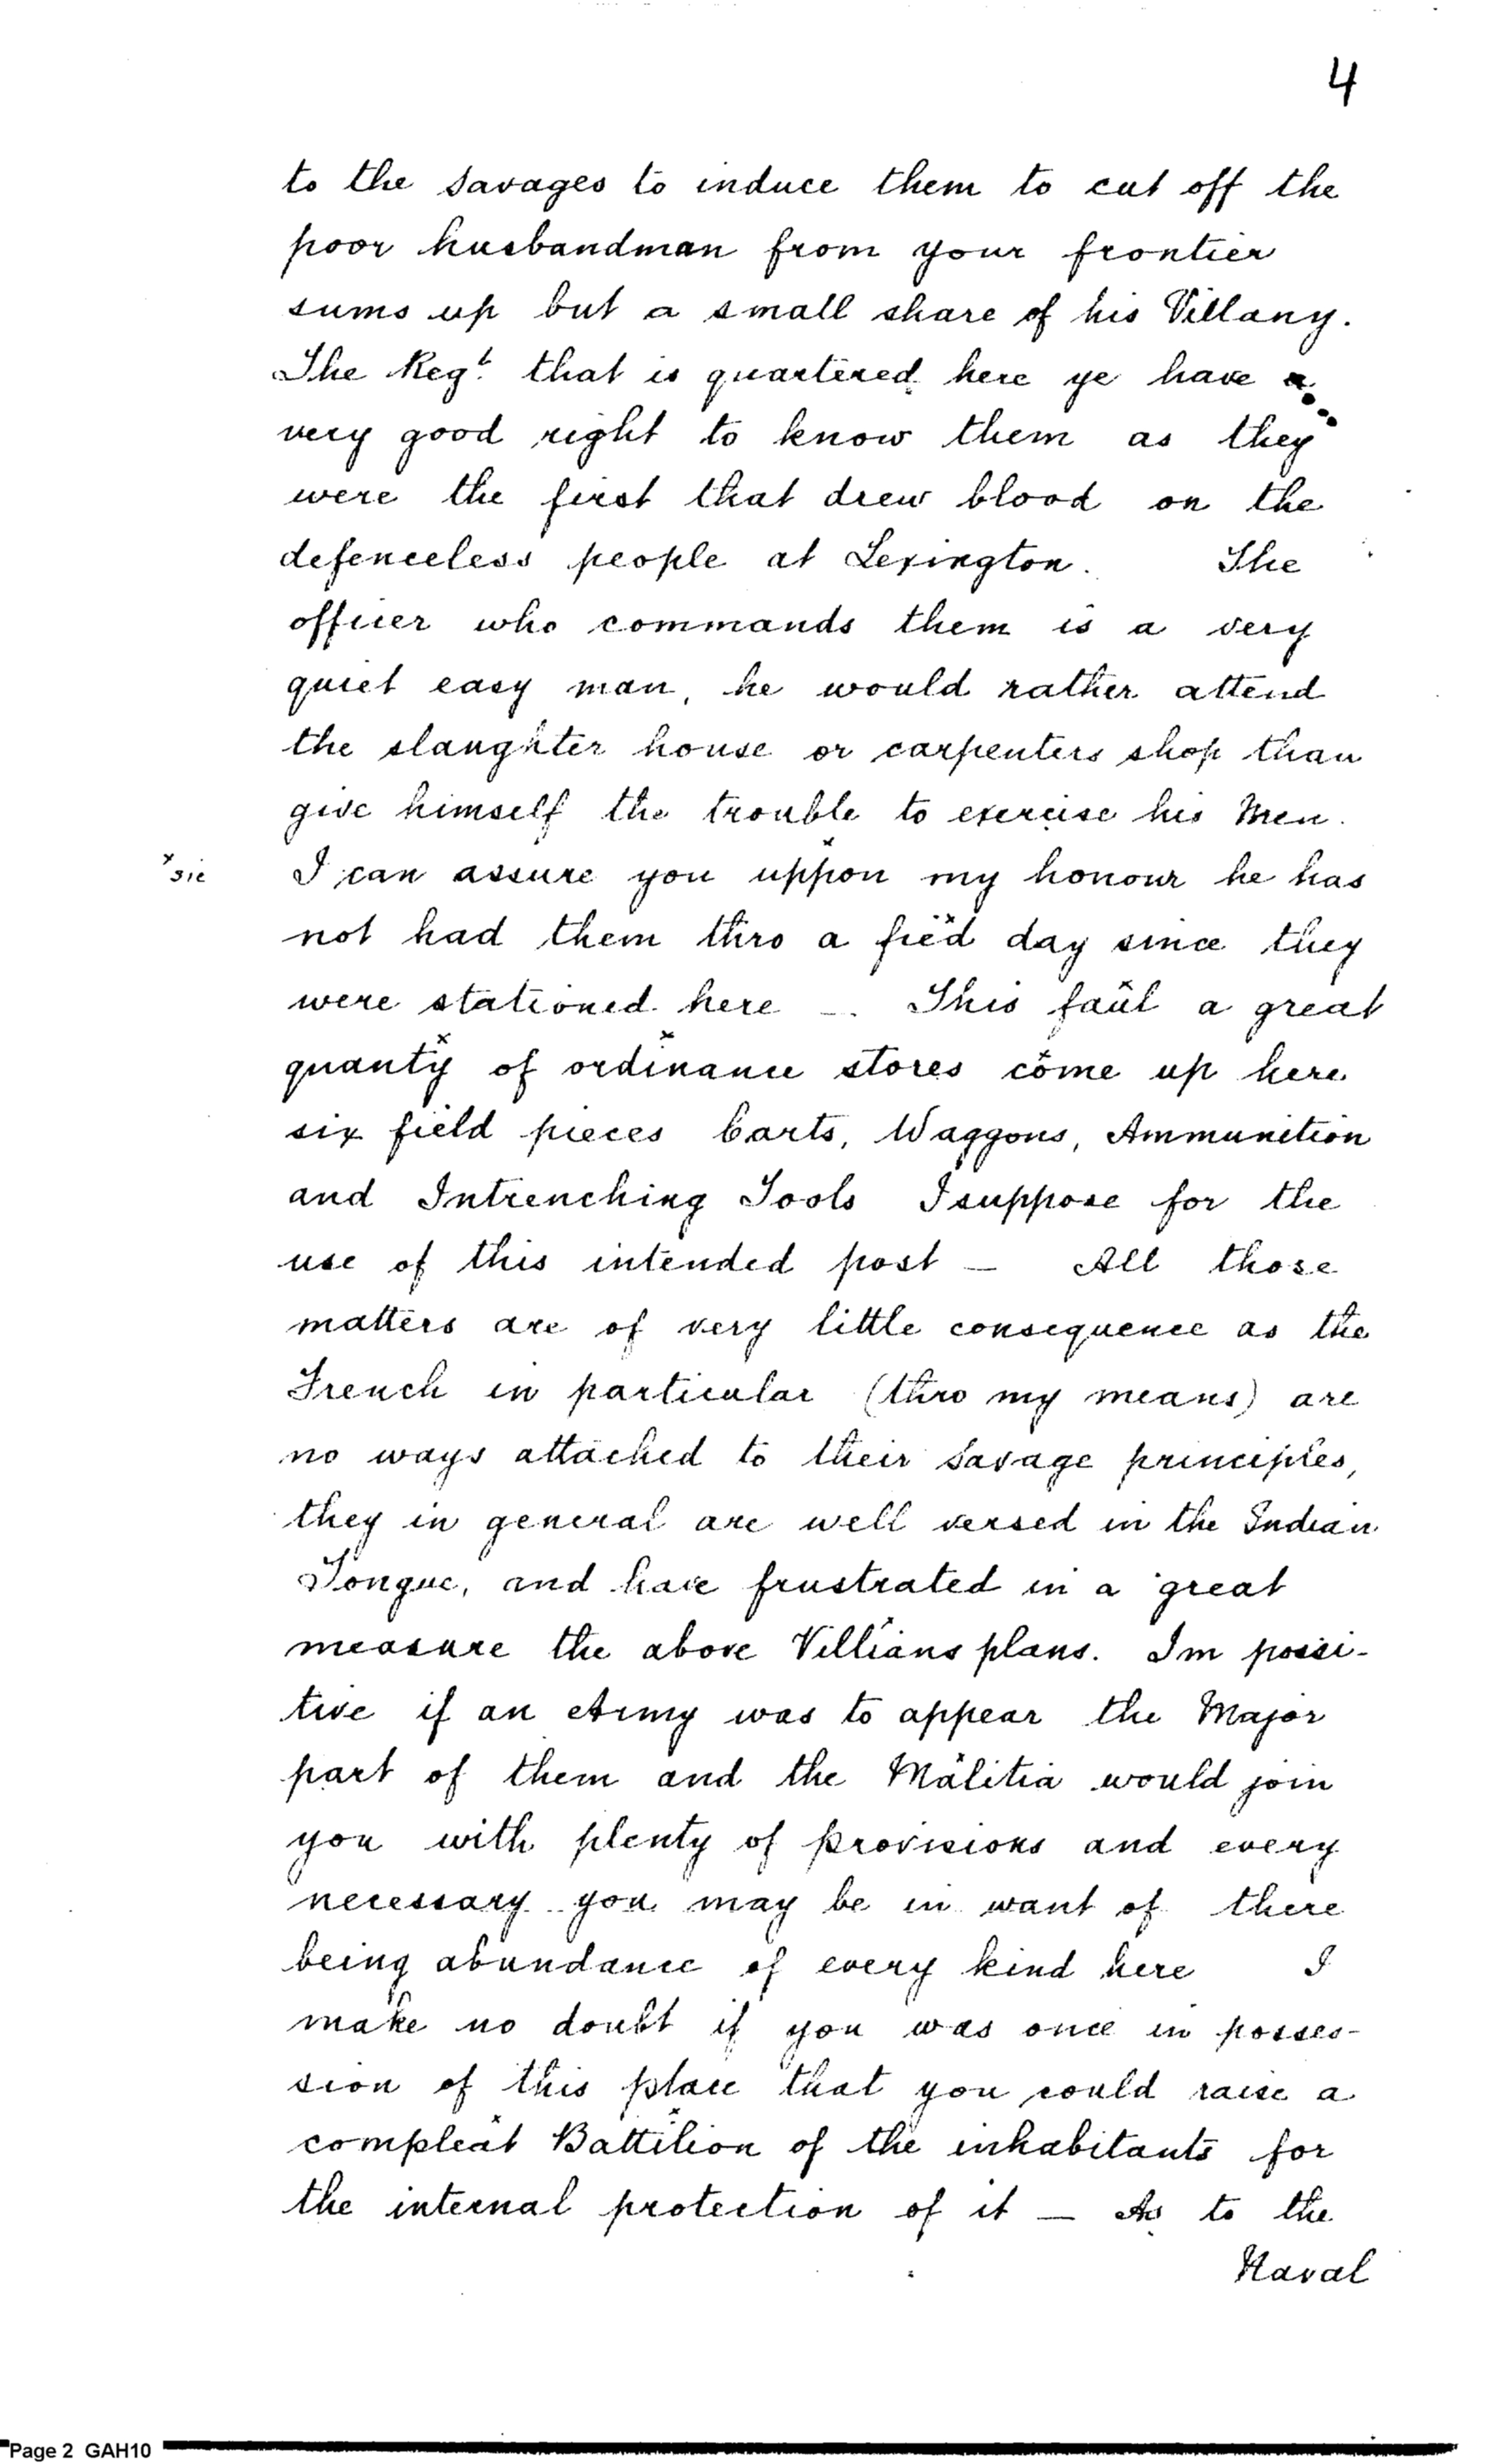 4
to the savages to induce them to cut off the
poor husbandman from your frontier
sums up but a small share of his Villany.
The Regt. that is quartered here ye have a
very good right to know them as they
were the first that drew blood on the
defenceless people at Lexington. The
officer who commands them is a very
quiet easy man, he would rather attend
the slaughter house or carpenters shop than
give himself the trouble to exercise his Men.
x sic I can assure you uppon my honour he has
not had them thro a fied day since they
were stationed here — This faul a great
quanty of ordinance stores come up here
six field pieces Carts, Waggons, Ammunition
and Intrenching Tools I suppose for the
use of this intended post — All those
matters are of very little consequence as the
French in particular (thro my means) are
no ways attached to their savage principles,
they in general are well versed in the Indian
Tongue, and have frustrated in a great
measure the above Villians plans. Im possi-
tive if an Army was to appear the Major
part of them and the Malitia would join
you with plenty of provisions and every
necessary you may be in want of there
being abundance of every kind here I
make no doubt if you was once in posses-
sion of this place that you could raise a
compleat Battilion of the inhabitants for
the internal protection of it — As to the
Naval
Page 2 GAH10